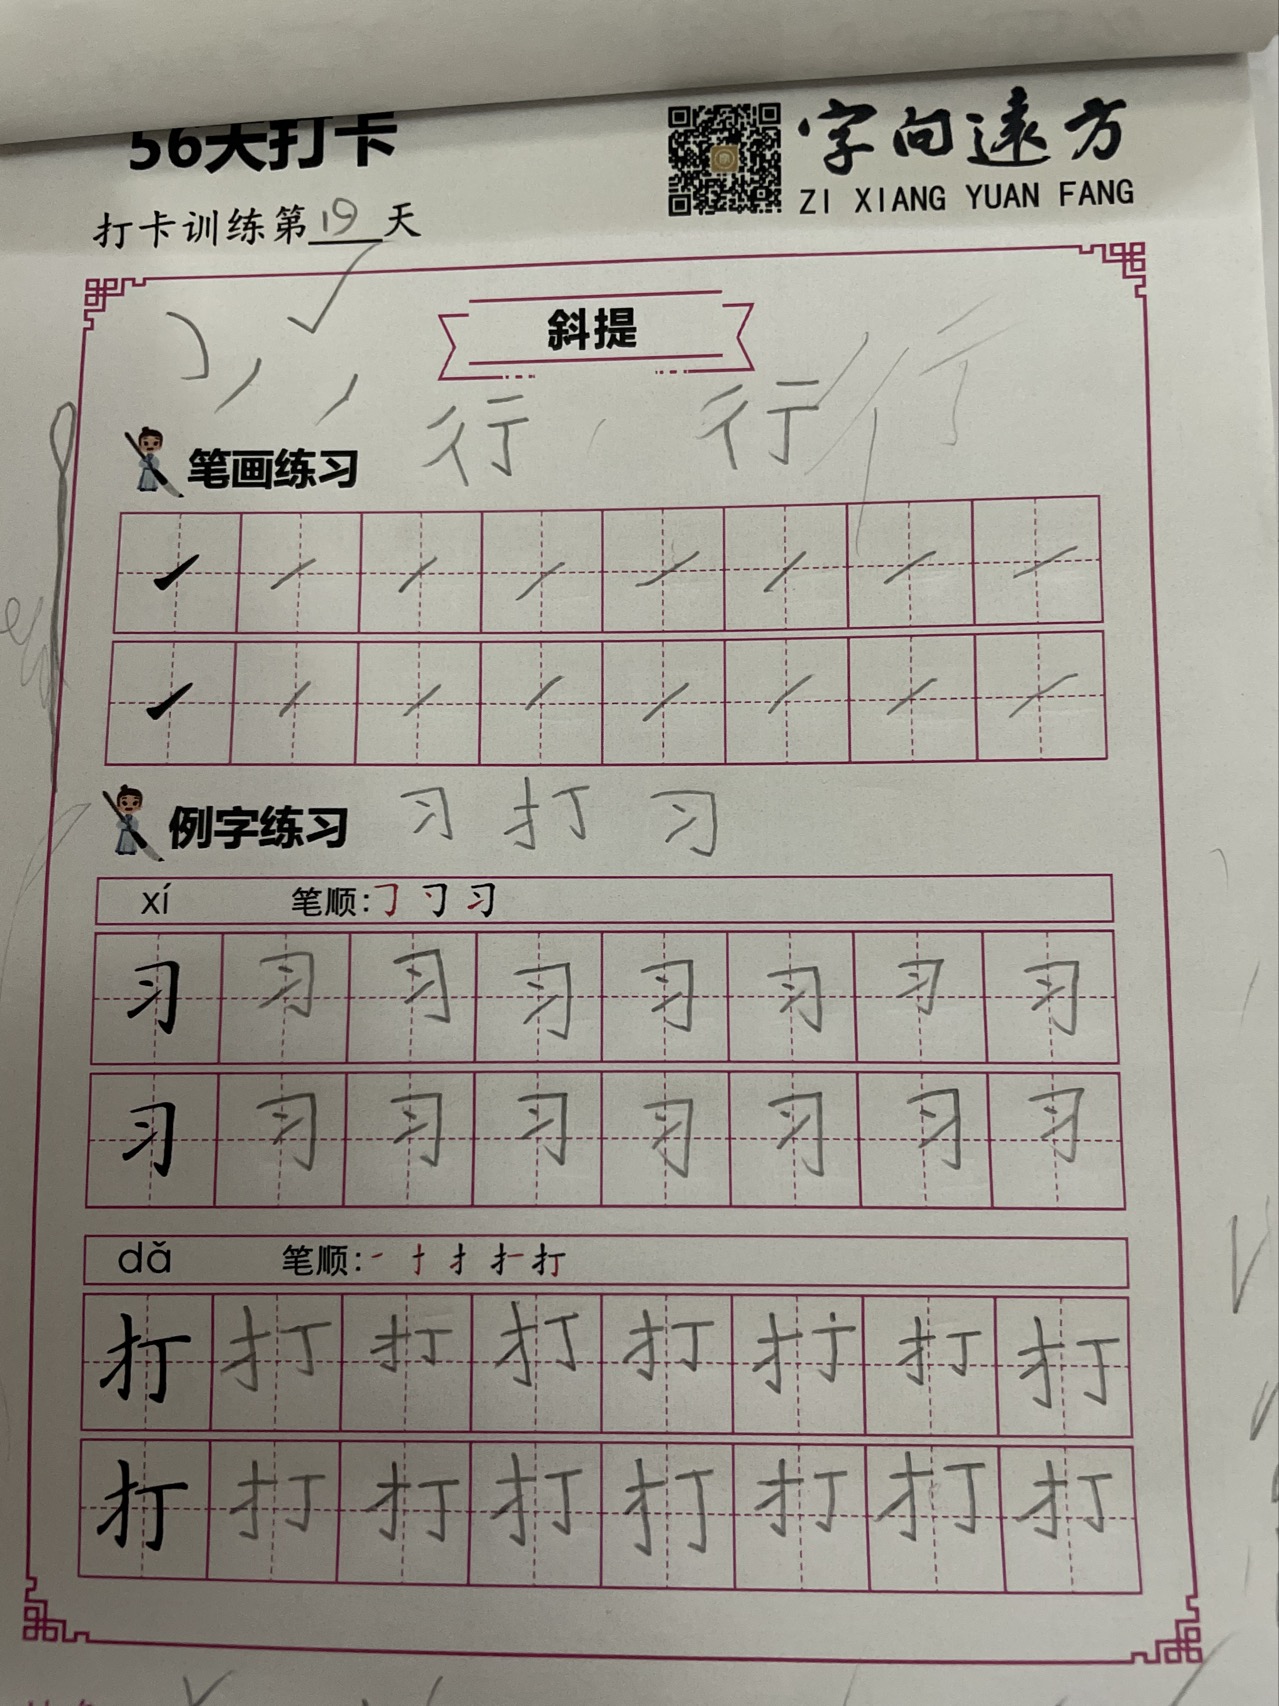 56天打卡
字向遠方
ZI XIANG YUAN FANG
打卡训练第19天
斜提
行 行 行
笔画练习
例字练习 习 打 习
xí 笔顺:㇆ 刁 习
习 习 习 习 习 习 习 习
习 习 习 习 习 习 习 习
dǎ 笔顺:㇀ 十 扌 扌一 打
打 打 打 打 打 打 打 打
打 打 打 打 打 打 打 打